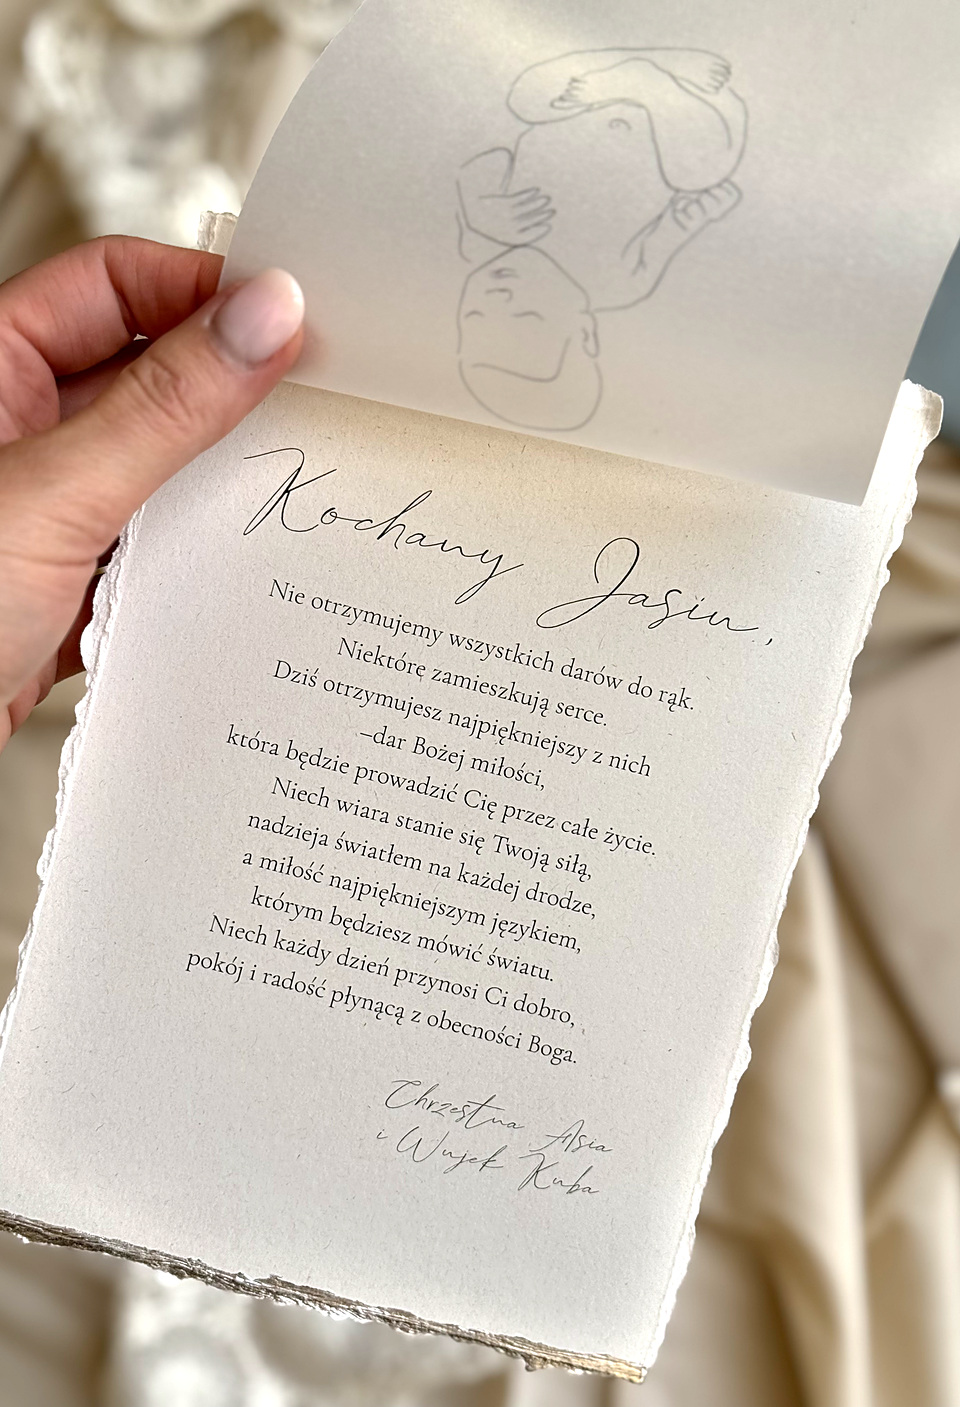 Kochany Jasiu,
Nie otrzymujemy wszystkich darów do rąk.
Niektórę zamieszkują serce.
Dziś otrzymujesz najpiękniejszy z nich
–dar Bożej miłości,
która będzie prowadzić Cię przez całe życie.
Niech wiara stanie się Twoją siłą,
nadzieja światłem na każdej drodze,
a miłość najpiękniejszym językiem,
którym będziesz mówić światu.
Niech każdy dzień przynosi Ci dobro,
pokój i radość płynącą z obecności Boga.
Chrzestna Asia
i Wujek Kuba